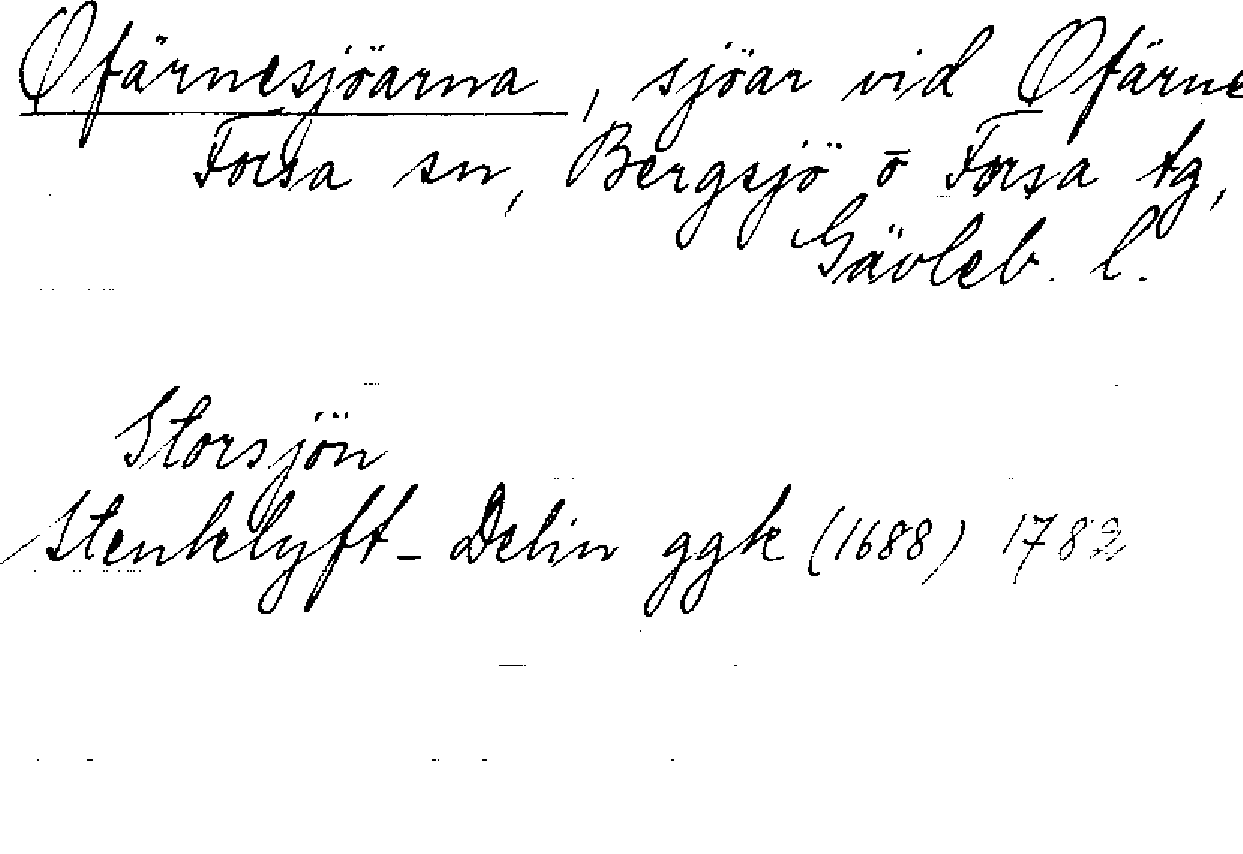 Ofärnesjöarna, sjöar vid Ofärne
Forsa sn, Bergsjö o Forsa tg,
Gävleb. l.
Storsjön
Stenklyft-Delin ggk (1688) 1782